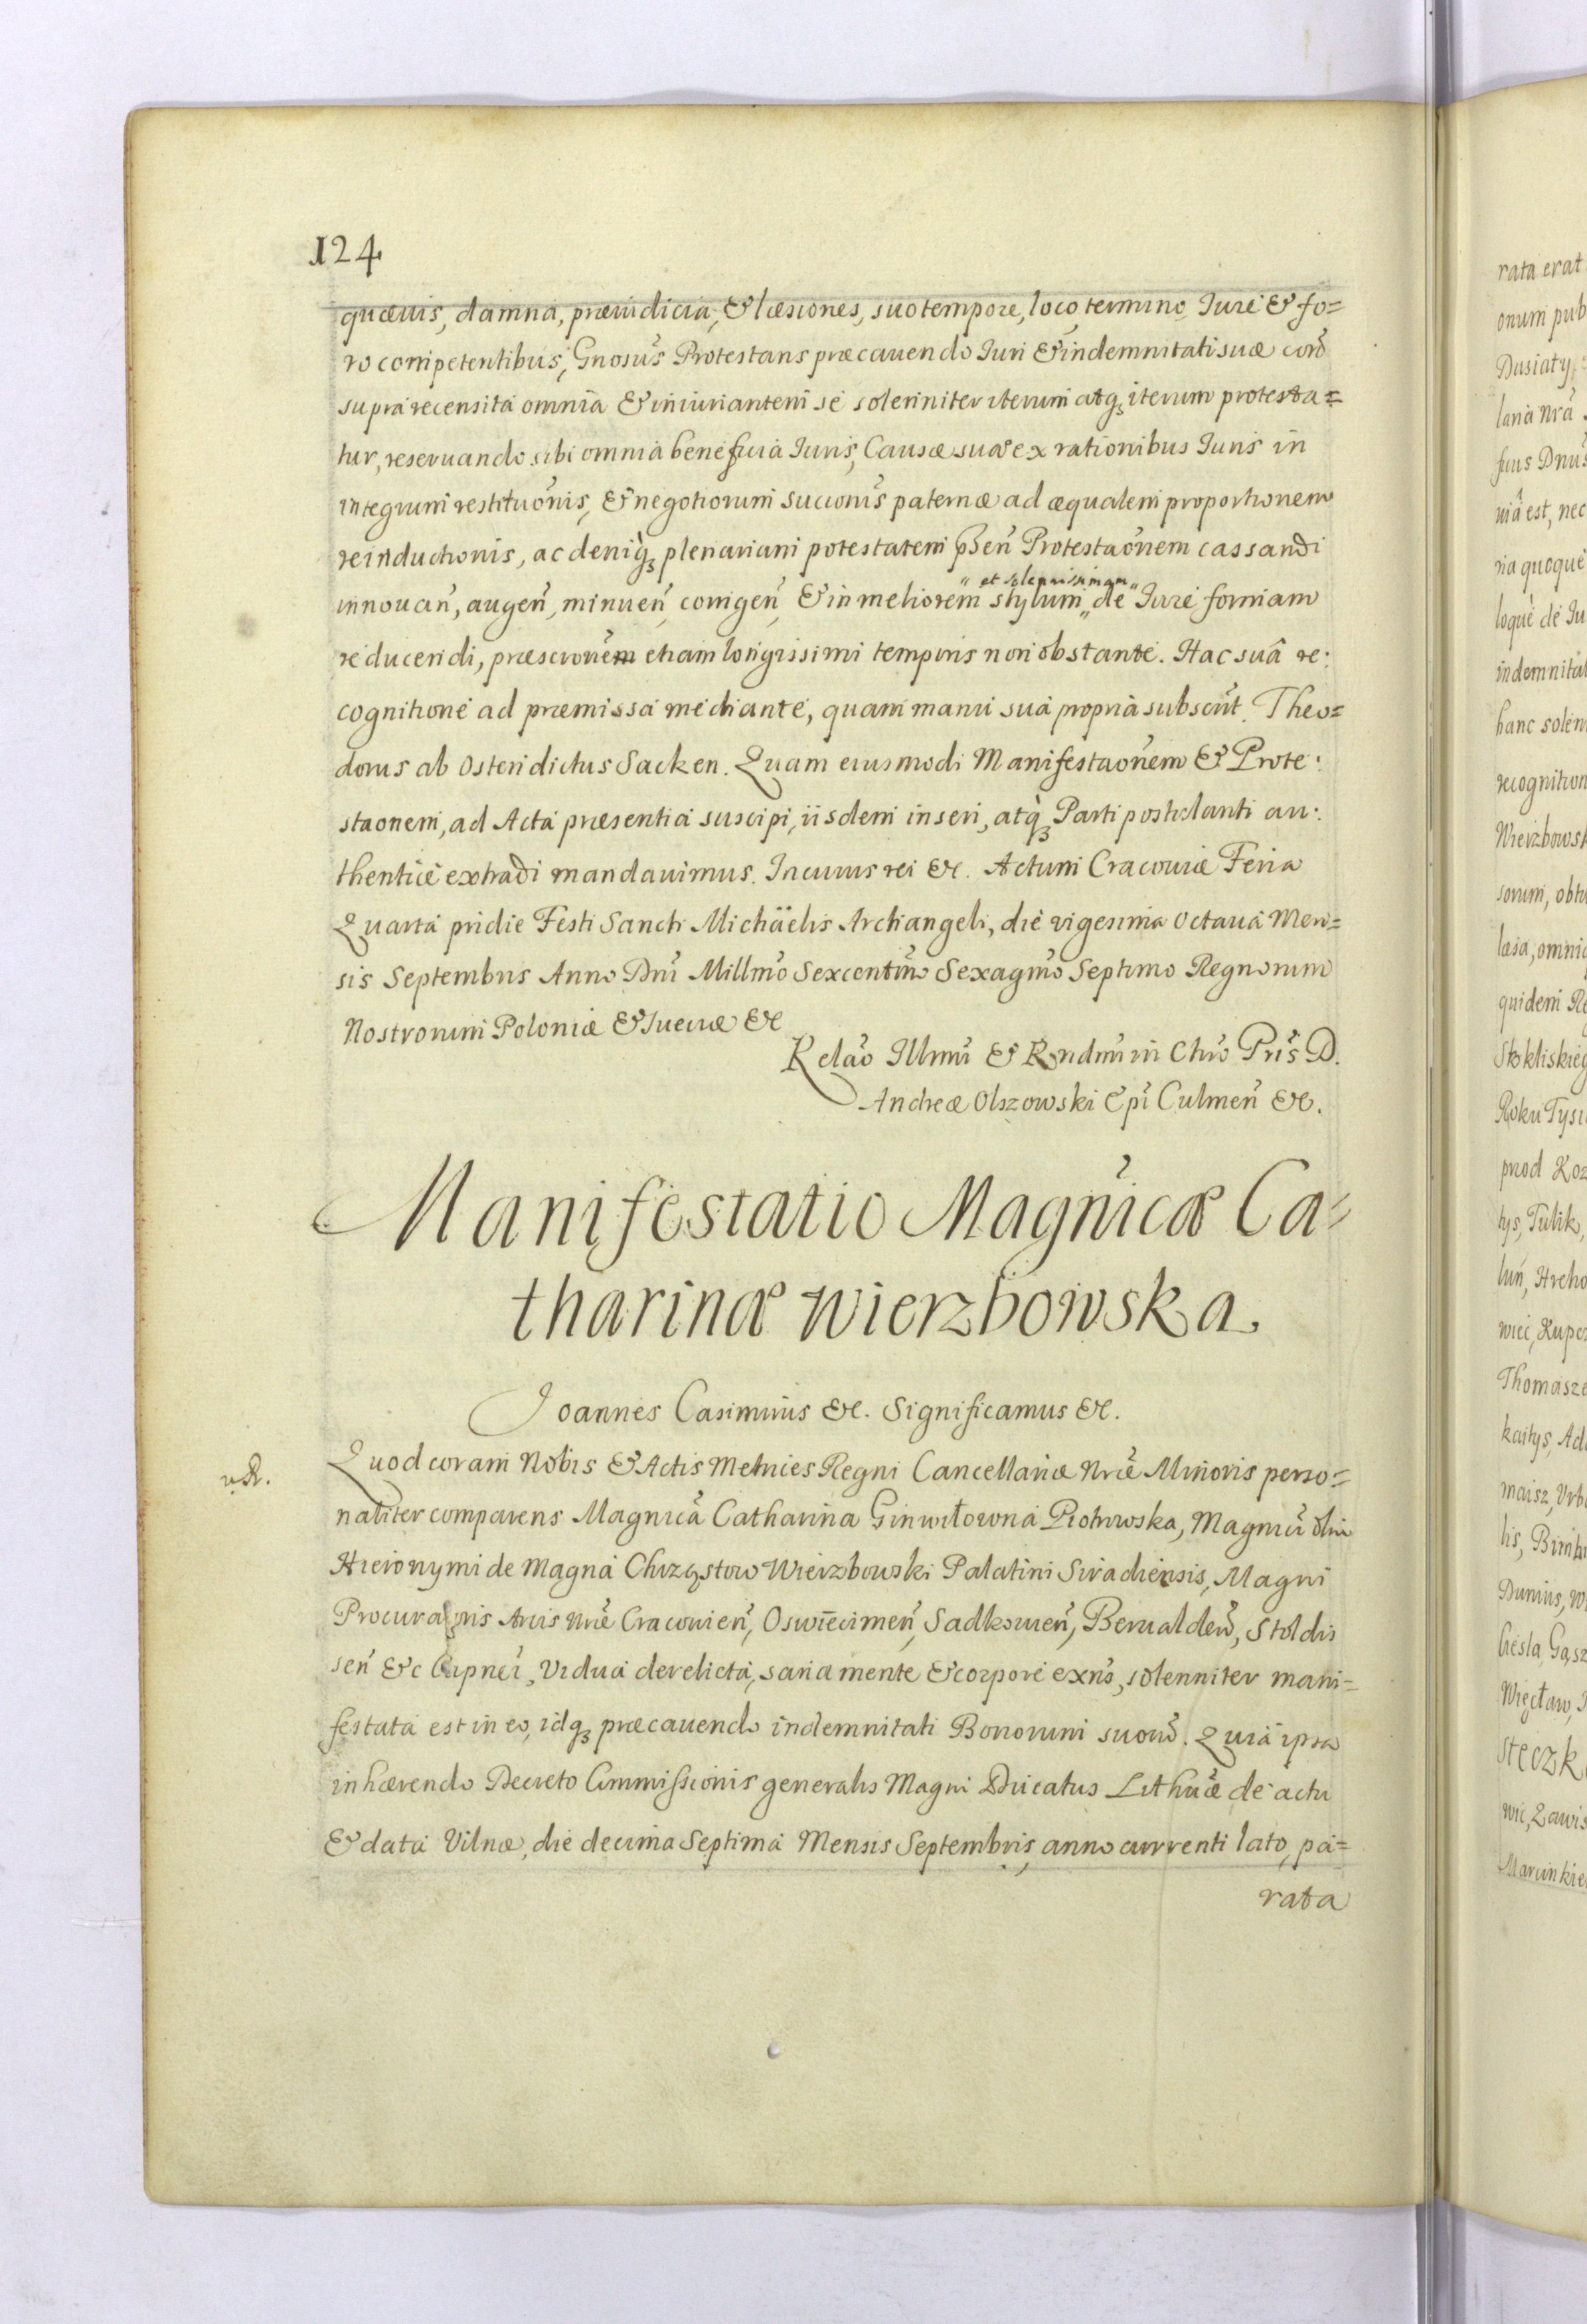 124
quævis, damna, præiudicia, & læsiones, suo tempore, loco, termino Iure & fo=
ro competentibus, Gnosus Protestans præcavendo Iuri & indemnitati suæ corō
supra recensita omnia & iniuriantem se solenniter iterum atq; iterum protesta=
tur, reseruando sibi omnia beneficia Iuris, Causæ suæ ex rationibus Iuris in
integrum restituōnis, & negotiorum sucionis paternæ ad æqualem proportionem
reinductionis, ac deniq; plenariam potestatem pñsen Protestaōnem cassandi
innouan, augen, minuen, corrigen, & in meliorem stylum „et solennissimam„ de Iure formam
reducendi, præscrionem etiam longissimi temporis non obstante. Hac suâ re:
cognitione ad præmissa mediante, quam manu sua propria subscrit. Theo=
dorus ab Osten dictus Sacken. Quam eiusmodi Manifestaōnem & Prote:
staonem, ad Acta præsentia suscipi, iisdem inseri, atq; Parti postulanti au:
thentice extradi mandauimus. In cuius rei &c. Actum Cracoviæ Feria
Quarta pridie Festi Sancti Michäelis Archangeli, die vigesima octava Men=
sis Septembris Anno Dni Millmo Sexcentmo Sexagmo Septimo Regnorum
Nostrorum Poloniæ & Sueciæ &c
Relao Illmi & Rndmi in Chro Pris D.
Andreæ Olszowski Epi Culmen &c.
Manifestatio Magnicæ Ca=
tharinæ Wierzbowska
Joannes Casimirus &c. Significamus &c.
Quod coram Nobis & Actis Metrices Regni Cancellariæ Nræ Minoris perso=
naliter comparens Magnica Catharina Ginwiłowna Piotrowska, Magnici olim
Hieronymi de Magna Chrząstow Wierzbowski Palatini Siradiensis, Magni
Procuratoris Arcis Nræ Cracovien, Oswiecimen, Sadkowien, Berwalden, Stoldis
sen &c Cipnei, Vidua derelicta, sana mente & corpore exns, solenniter mani=
festata est in eo, idq; præcavendo indemnitati Bonorum suorō. Quia ipsa
inhærendo Decreto Commissionis generalis Magni Ducatus Lithuæ de actu
& data Vilnæ, die decima Septima Mensis Septembris, anno currenti lato, pa=
rata
rata erat
onum pub
Dusiaty,
laria Nra
suus Dnus
nia est, nec
ria quoque
loque de Iu
indemnitat
hanc solen
recognition
Wierzbowsk
sorum, obtu
læsa, omnia
quidem Re
Stokliskieg
Roku Tysią
pnod Koz
tys, Tulik,
lun, Hreho
wiec, Kupcz
Thomasze
kaitys, Ad
maisz, Vrb
lis, Birnh
Dunius, W
Ciesla, Gasz
Więcław, J
Steczk
wic, Zawis
Marcinkie